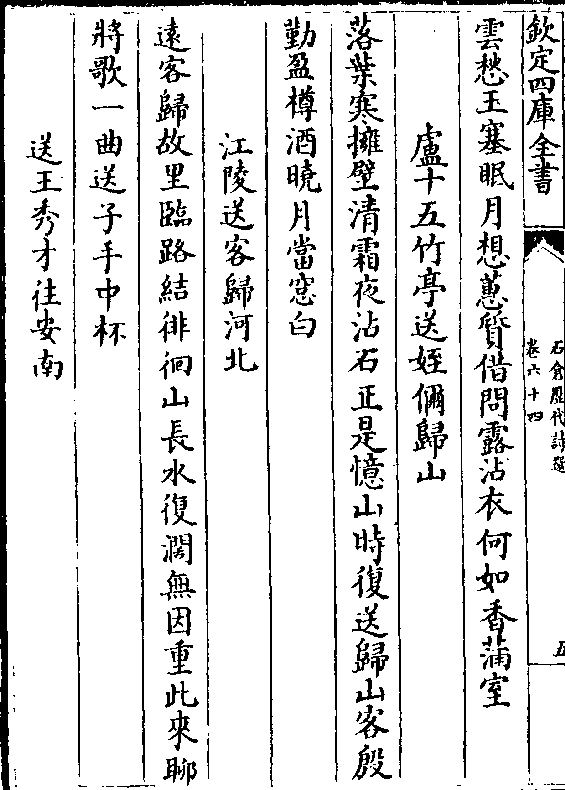 欽定四庫全書
石倉歷代詩選
卷六十四
五
雲愁玉塞眠月想蕙質借問露沾衣何如香蒲室
盧十五竹亭送姪偁歸山
落葉寒擁壁清霜夜沾石正是憶山時復送歸山客殷
勤盈樽酒曉月當窓白
江陵送客歸河北
遠客歸故里臨路結徘徊山長水復濶無因重此來聊
將歌一曲送子手中杯
送王秀才往安南